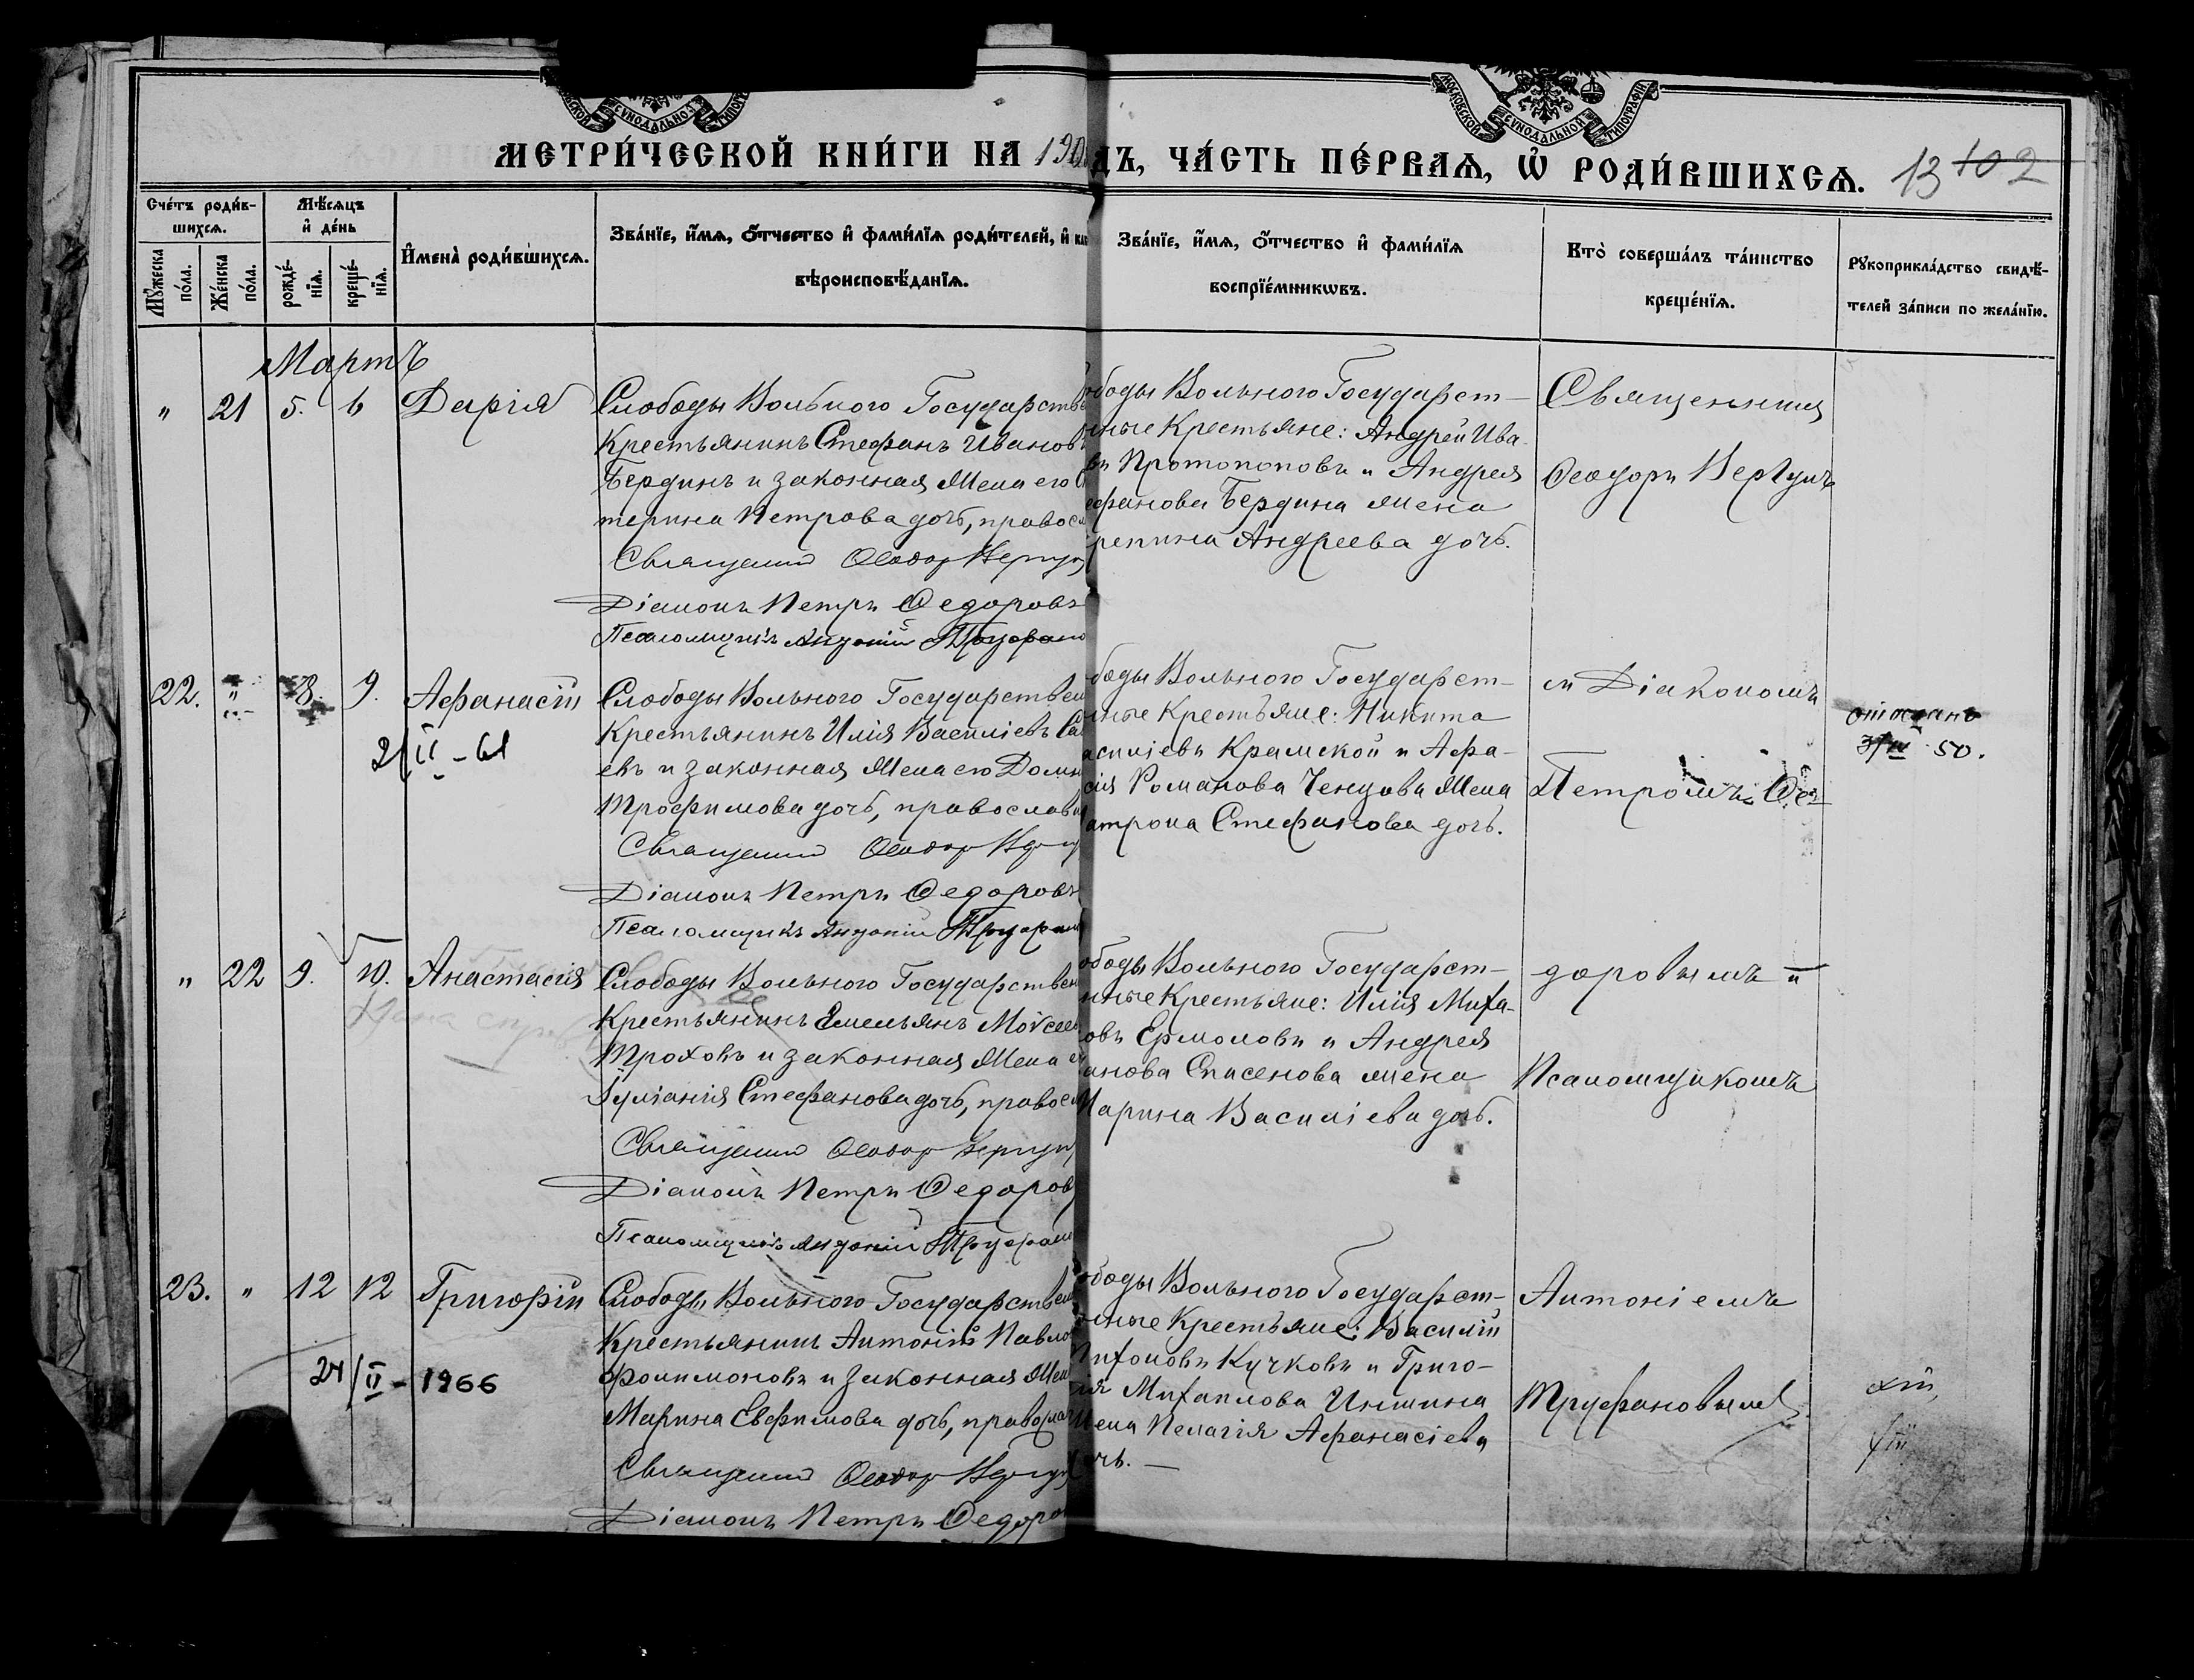 МОСКОВСКОЙ СѴНОДАЛЬНОЙ ТИПОГРАФІИ
МЕТРИ́ЧЕСКОЙ КНИ́ГИ НА 190
ДЪ, ЧА́СТЬ ПЕ́РВАѦ, Ѡ҆ РОДИ́ВШИХСѦ.
13 102
Сче́тъ роди́в-
шихсѧ.
Мѣ́сѧцъ
и҆ де́нь
Мꙋ́жеска
по́ла.
Же́нска
по́ла.
рожде́-
нїѧ.
креще́-
нїѧ.
И҆мена̀ роди́вшихсѧ.
Зва́нїе, и҆́мѧ, ѻ҆́тчество и҆ фами́лїѧ роди́телей, и҆
вѣроисповѣ́данїѧ.
Зва́нїе, и҆́мѧ, ѻ҆́тчество и҆ фами́лїѧ
воспрїе́мникѡвъ.
Кто̀ соверша́лъ та́инство
креще́нїѧ.
Рꙋкоприкла́дство свидѣ́-
телей за́писи по жела́нїю.
Мартъ
" 21 5. 6 Дарія
Слободы Вольного Государств
Крестьянинъ Стефанъ Иванов
Бердинъ и законная жена его
терина Петрова дочь, правосл
Священник Феодор Вергун
Діаконъ Петръ Федоровъ
Псаломщикъ Антоній Труфано
ободы Вольного Государст-
нные Крестьяне: Андрей Ива-
въ Протопоповъ и Андрея
ефанова Бердина жена
репина Андреева дочь.
Священник
Феодоръ Вергунъ
22. " 8. 9. Афанасій
2/II - 61
Слободы Вольного Государствен
Крестьянинъ Илія Василіевъ
евъ и законная жена его Домн
Трофимова дочь, православн
Священник Феодор Верг
Діаконъ Петръ Федоровъ
Псаломщикъ Антоній Труфан
ободы Вольного Государст-
нные Крестьяне: Никита
асиліевъ Крамской и Афа-
сія Романова Ченцова жена
атрона Стефанова дочь.
съ Діакономъ
Петромъ Фе-
50.
" 22 9. 10. Анастасія
Слободы Вольного Государствен
Крестьянинъ Емельянъ Моѵсеев
Троховъ и законная жена ег
Іуліанія Стефанова дочь, правосл
Священник Феодор Вергун
Діаконъ Петръ Федоров
Псаломщикъ Антоній Труфан
ободы Вольного Государст-
нные Крестьяне: Илія Миха-
овъ Ермоловъ и Андрея
анова Спасенова жена
Марина Василіева дочь.
доровымъ и
Псаломщикомъ
23. " 12 12 Григорій
24/II - 1966
Слободы Вольного Государствен
Крестьянинъ Антоній Павло
Филимоновъ и законная жен
Марина Евфимова дочь, правосла
Священник Феодор Вергун
Діаконъ Петръ Федоров
ободы Вольного Государст-
нные Крестьяне: Василій
ифоновъ Кучковъ и Григо-
ія Михаилова Иншина
жена Пелагія Афанасіева
очь. —
Антоніемъ
Труфановымъ